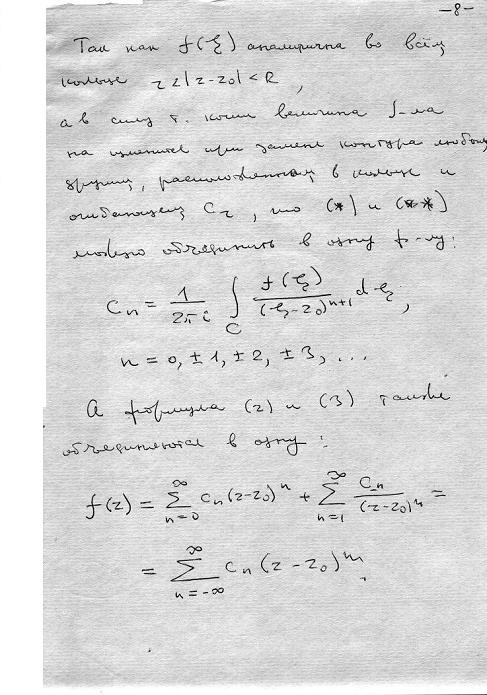 -8-
Так как f(ξ) аналитична во всём
кольце r<|z-z₀|<R,
а в силу т. Коши величина ∫-ла
не изменится при замене контура любым
другим, расположенным в кольце и
огибающем Cᵣ, то (*) и (**)
можно объединить в одну ф-лу:
Cₙ = 1/(2πi) ∫_C f(ξ)/(ξ-z₀)ⁿ⁺¹ dξ,
n = 0, ±1, ±2, ±3, ...
А формула (2) и (3) также
объединяются в одну:
f(z) = ∑_{n=0}^{∞} Cₙ(z-z₀)ⁿ + ∑_{n=1}^{∞} C₋ₙ/(z-z₀)ⁿ =
= ∑_{n=-∞}^{∞} Cₙ(z-z₀)ⁿ.